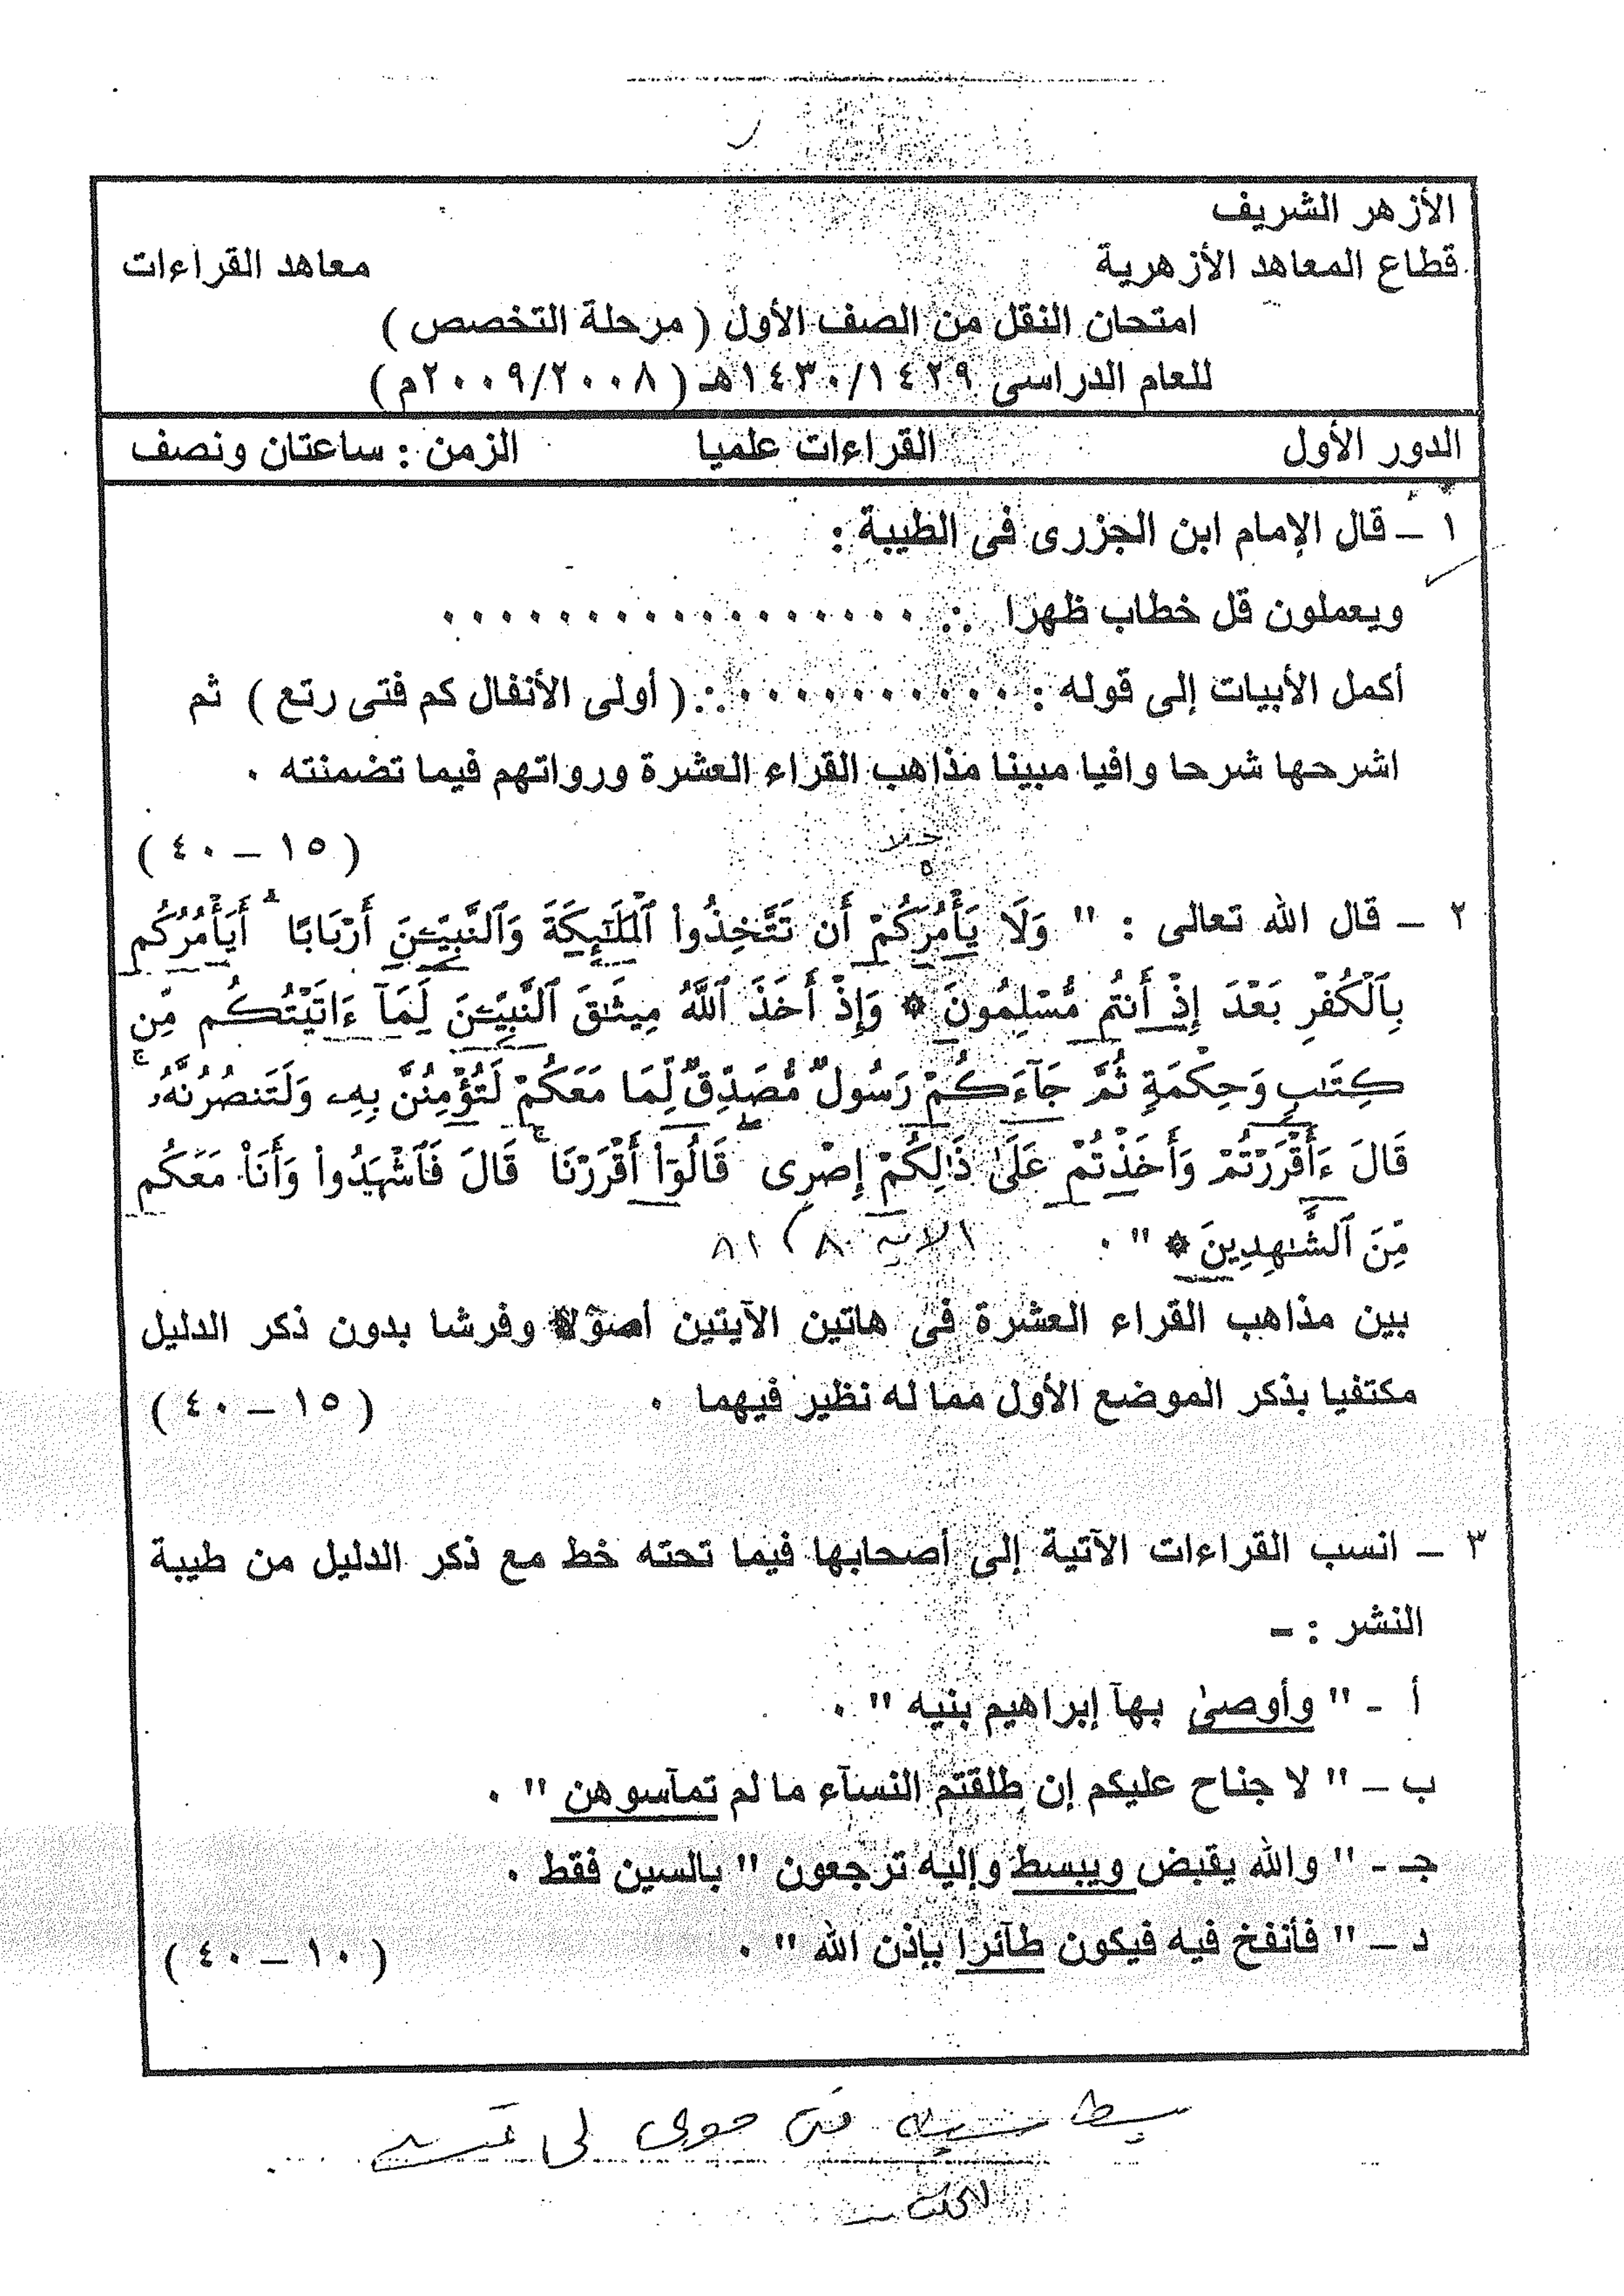 الأزهر الشريف
قطاع المعاهد الأزهرية معاهد القراءات
امتحان النقل من الصف الأول ( مرحلة التخصص )
للعام الدراسى ١٤٣٠/١٤٢٩هـ ( ٢٠٠٩/٢٠٠٨م )
الدور الأول القراءات علميا الزمن : ساعتان ونصف
١ – قال الإمام ابن الجزرى فى الطيبة :
ويعملون قل خطاب ظهرا .:. ٠ ٠ ٠ ٠ ٠ ٠ ٠ ٠ ٠ ٠ ٠ ٠ ٠ ٠ ٠ ٠ ٠
أكمل الأبيات إلى قوله : ٠ ٠ ٠ ٠ ٠ ٠ ٠ ٠ ٠ ٠ .:. ( أولى الأنفال كم فتى رتع ) ثم
اشرحها شرحا وافيا مبينا مذاهب القراء العشرة ورواتهم فيما تضمنته ٠
( ١٥ – ٤٠ )
٢ – قال الله تعالى : " وَلَا يَأْمُرَكُمْ أَن تَتَّخِذُوا۟ ٱلْمَلَـٰٓئِكَةَ وَٱلنَّبِيِّـۧنَ أَرْبَابًا ۗ أَيَأْمُرُكُم
بِٱلْكُفْرِ بَعْدَ إِذْ أَنتُم مُّسْلِمُونَ ۞ وَإِذْ أَخَذَ ٱللَّهُ مِيثَـٰقَ ٱلنَّبِيِّـۧنَ لَمَآ ءَاتَيْتُكُم مِّن
كِتَـٰبٍ وَحِكْمَةٍ ثُمَّ جَآءَكُمْ رَسُولٌ مُّصَدِّقٌ لِّمَا مَعَكُمْ لَتُؤْمِنُنَّ بِهِۦ وَلَتَنصُرُنَّهُۥ ۚ
قَالَ ءَأَقْرَرْتُمْ وَأَخَذْتُمْ عَلَىٰ ذَٰلِكُمْ إِصْرِى ۖ قَالُوٓا۟ أَقْرَرْنَا ۚ قَالَ فَٱشْهَدُوا۟ وَأَنَا۠ مَعَكُم
مِّنَ ٱلشَّـٰهِدِينَ ۞ " ٠ الآية ٨٠ ، ٨١
بين مذاهب القراء العشرة فى هاتين الآيتين أصولا وفرشا بدون ذكر الدليل
مكتفيا بذكر الموضع الأول مما له نظير فيهما ٠ ( ١٥ – ٤٠ )
٣ – انسب القراءات الآتية إلى أصحابها فيما تحته خط مع ذكر الدليل من طيبة
النشر : –
أ - " وأوصىٰ بهآ إبراهيم بنيه " ٠
ب – " لا جناح عليكم إن طلقتم النسآء ما لم تمآسوهن " ٠
جـ - " والله يقبض ويبسط وإليه ترجعون " بالسين فقط ٠
د – " فأنفخ فيه فيكون طآئرا بإذن الله " ٠ ( ١٠ – ٤٠ )